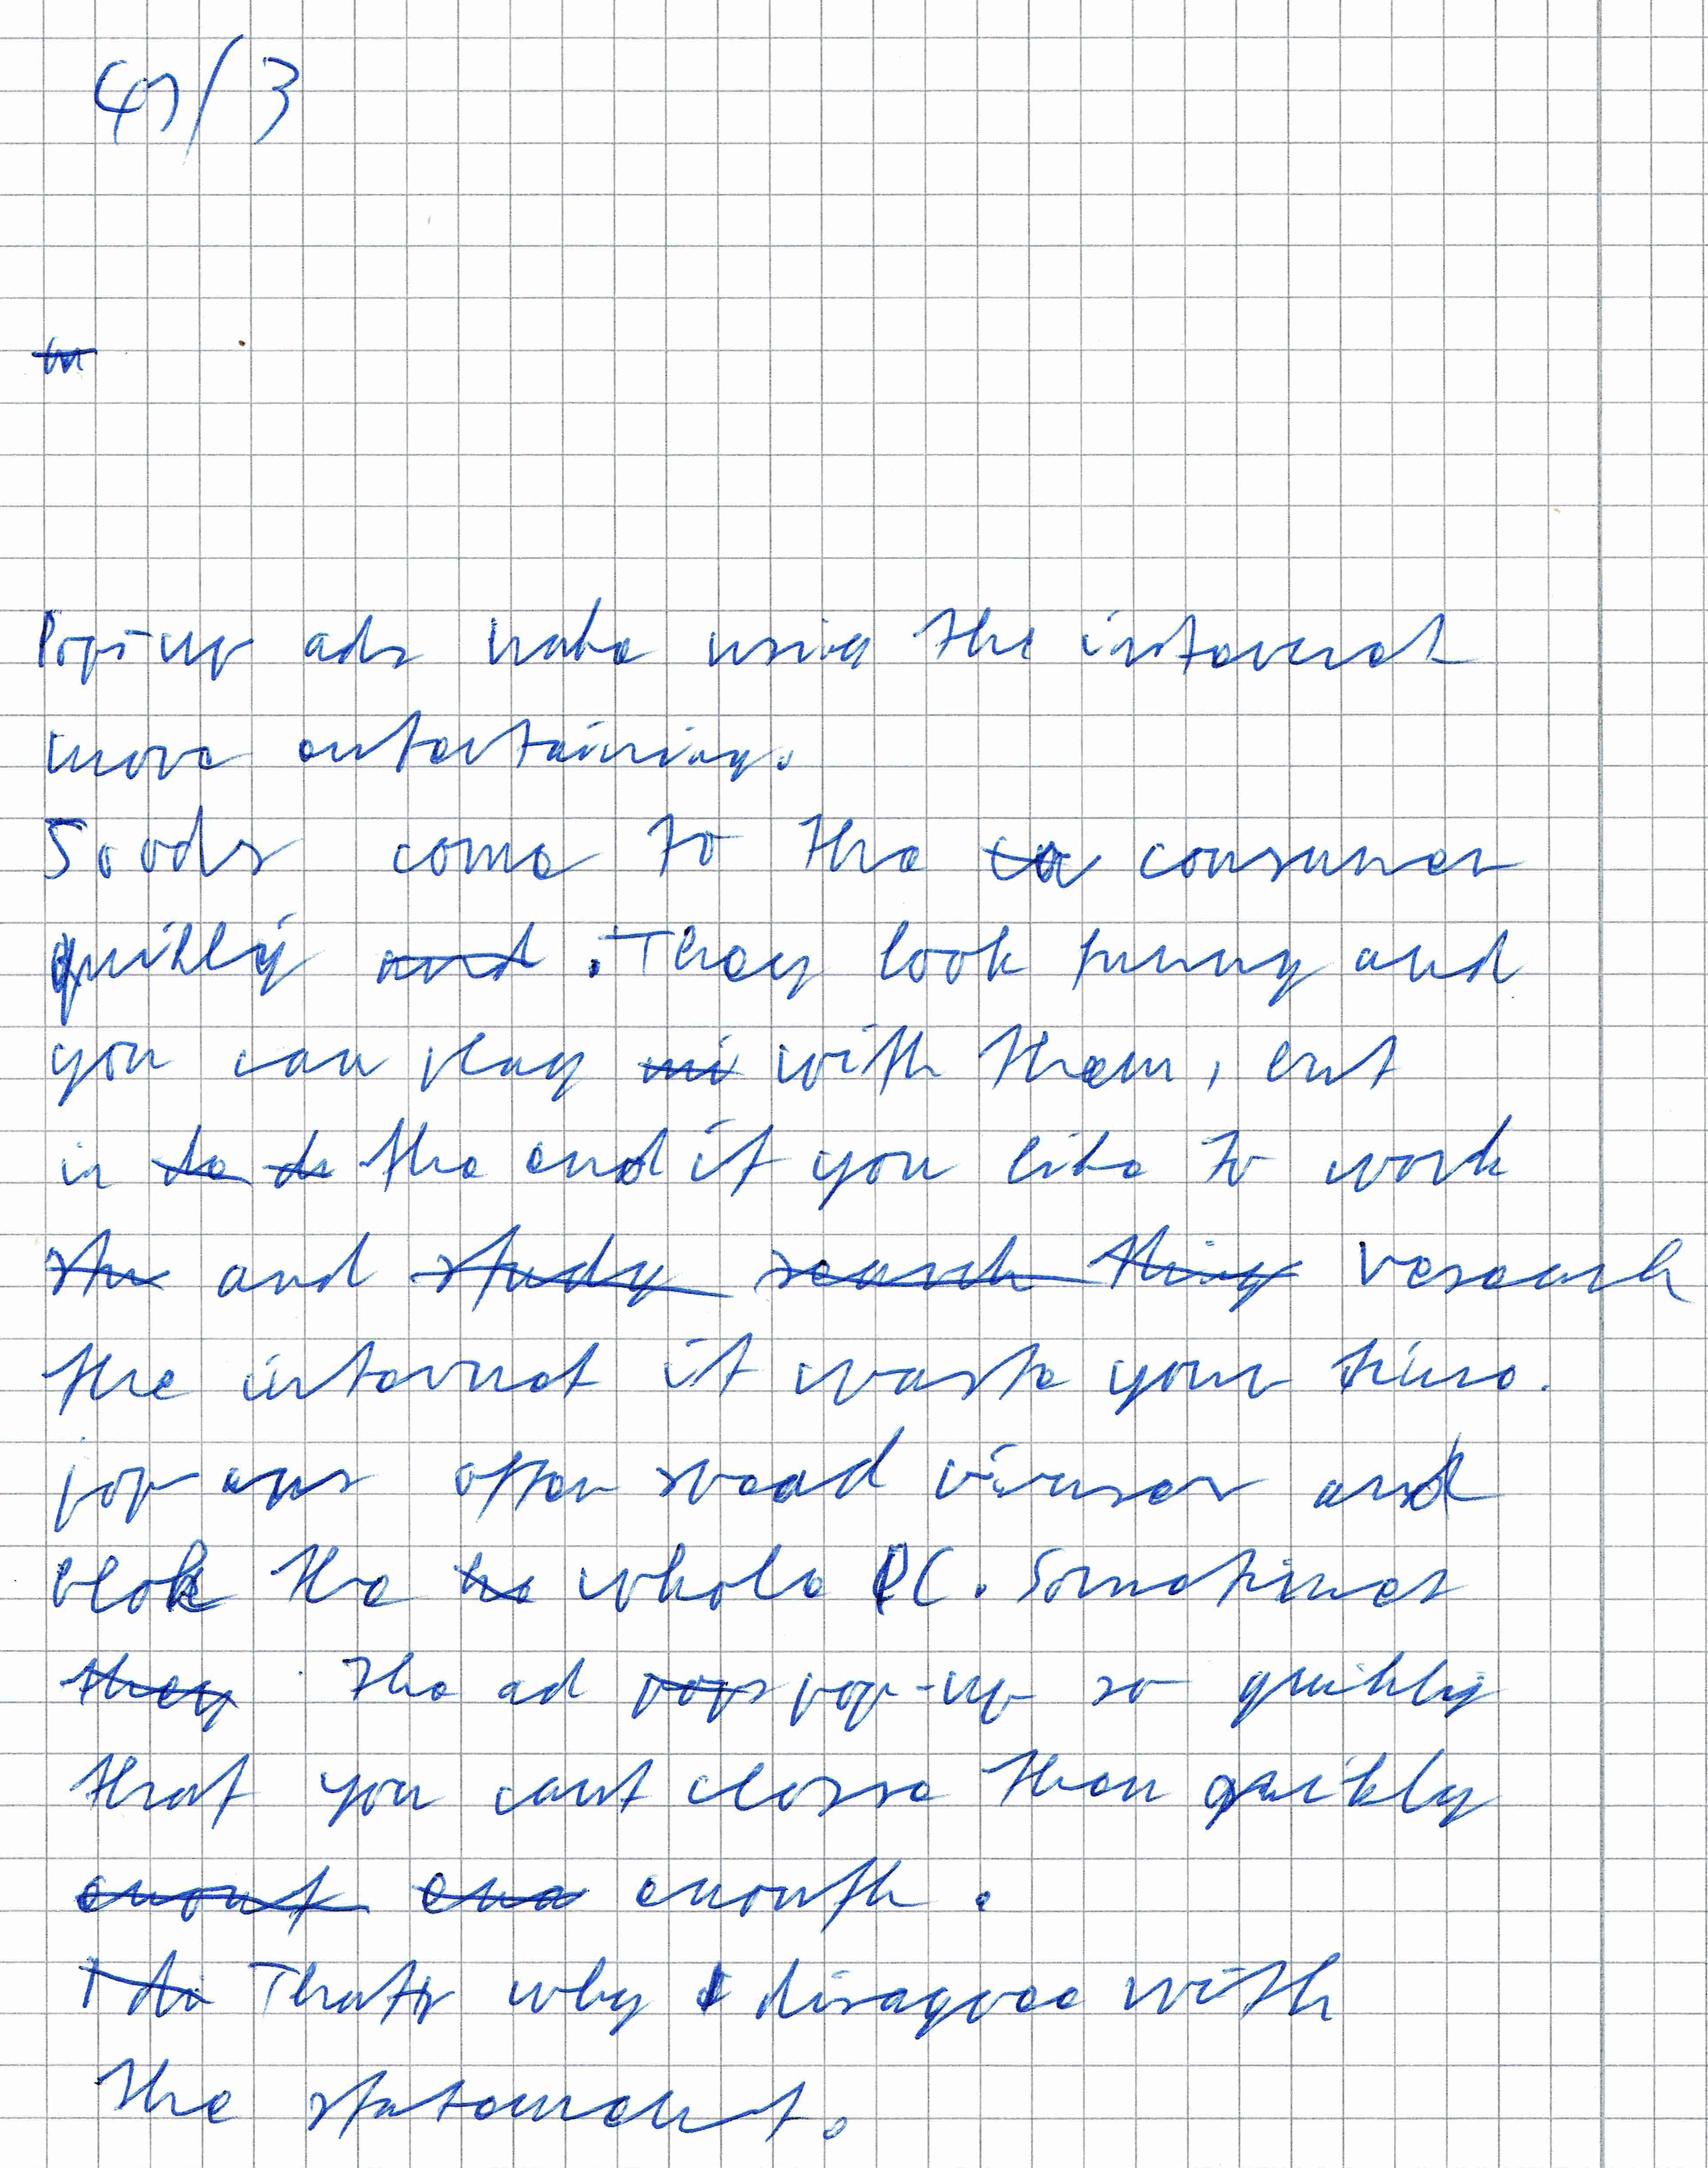 47/3
Pop-up ads make using the internet
more entertaining.
Goods come to the consumer
quikly . They look funny and
you can play with them, but
in the end if you like to work
and research
the internet it waste your time.
pop ups often sread viruses and
blok the whole PC. Sometimes
the ad pop-up so quikly
that you cant closse then quikly
enouth .
Thats why I disagree with
the statement.